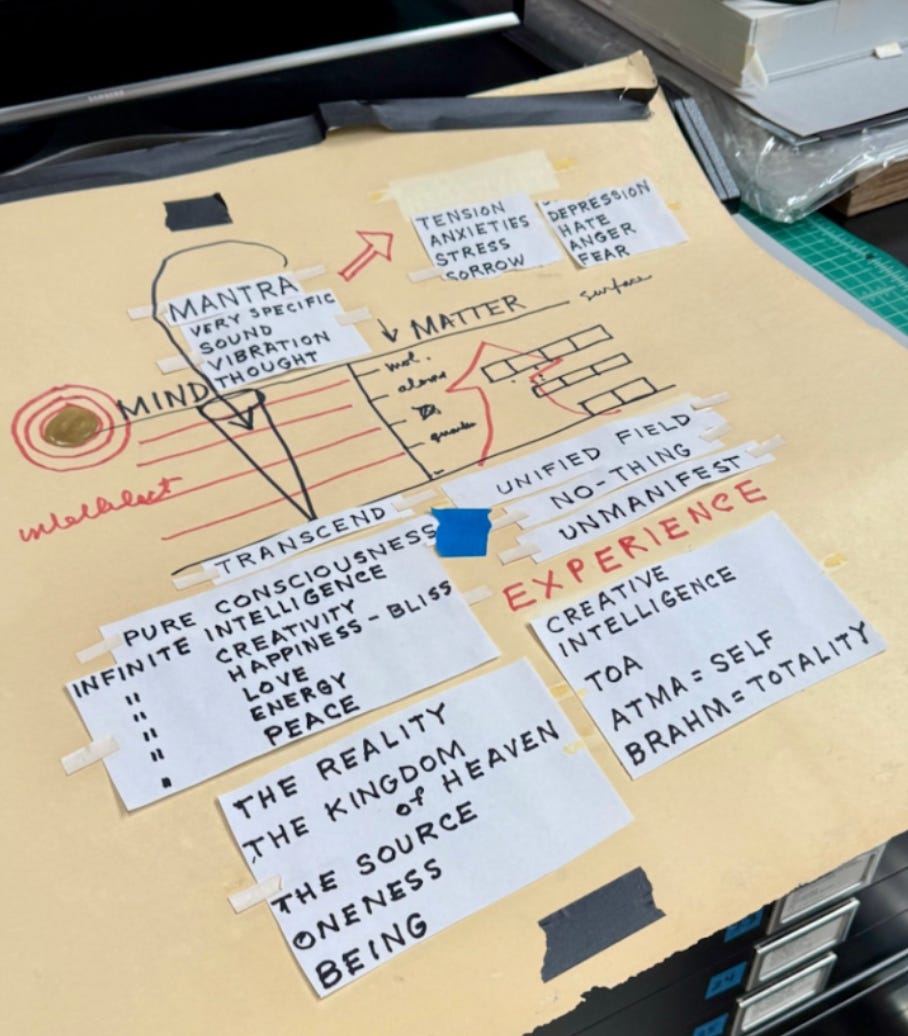 TENSION
ANXIETIES
STRESS
SORROW
DEPRESSION
HATE
ANGER
FEAR
MANTRA
VERY SPECIFIC
SOUND
VIBRATION
THOUGHT
MATTER
surface
mol.
MIND
UNIFIED FIELD
NO-THING
UNMANIFEST
TRANSCEND
EXPERIENCE
PURE CONSCIOUSNESS
INFINITE INTELLIGENCE
" CREATIVITY
" HAPPINESS-BLISS
" LOVE
" ENERGY
PEACE
CREATIVE
INTELLIGENCE
TOA
ATMA = SELF
BRAHM = TOTALITY
THE REALITY
THE KINGDOM
of HEAVEN
THE SOURCE
ONENESS
BEING
24